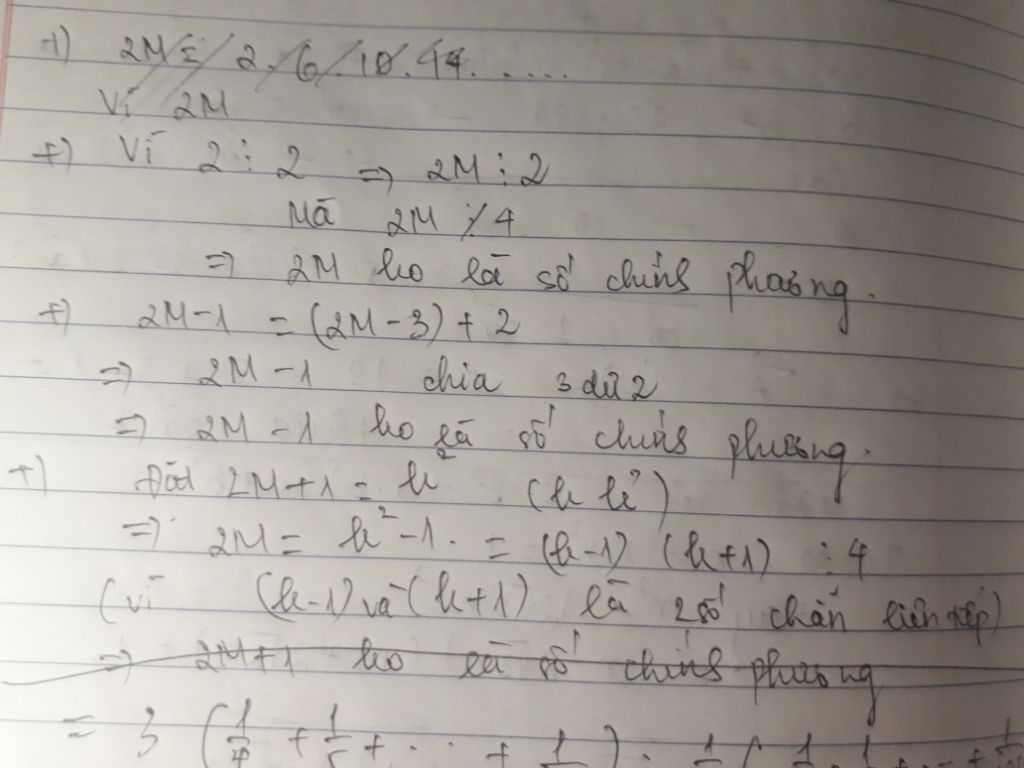 +) 2M = 2.6.10.14.....
Vì 2M
+) Vì 2 ⋮ 2 => 2M ⋮ 2
Mà 2M ⋮̸ 4
=> 2M ko là số chính phương.
+) 2M-1 = (2M-3)+2
=> 2M-1 chia 3 dư 2
=> 2M-1 ko là số chính phương.
+) Đặt 2M+1 = k² (k lẻ)
=> 2M = k²-1. = (k-1)(k+1) ⋮ 4
(vì (k-1) và (k+1) là 2 số chẵn liên tiếp)
=> 2M+1 ko là số chính phương
= 3 (